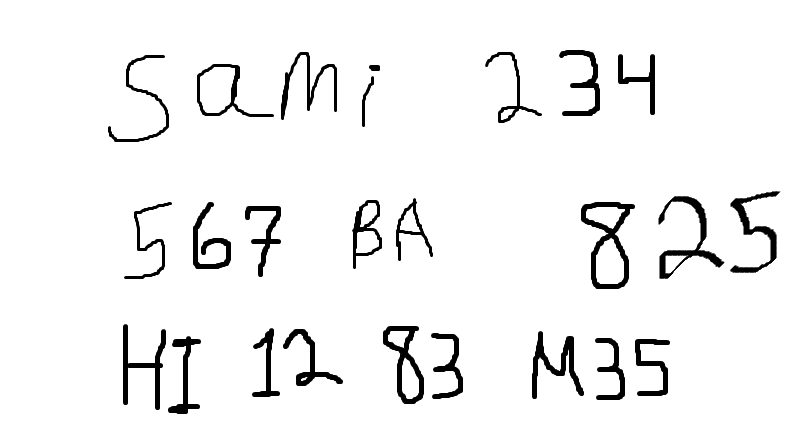 SaMi 234
567 BA 825
HI 12 83 M35